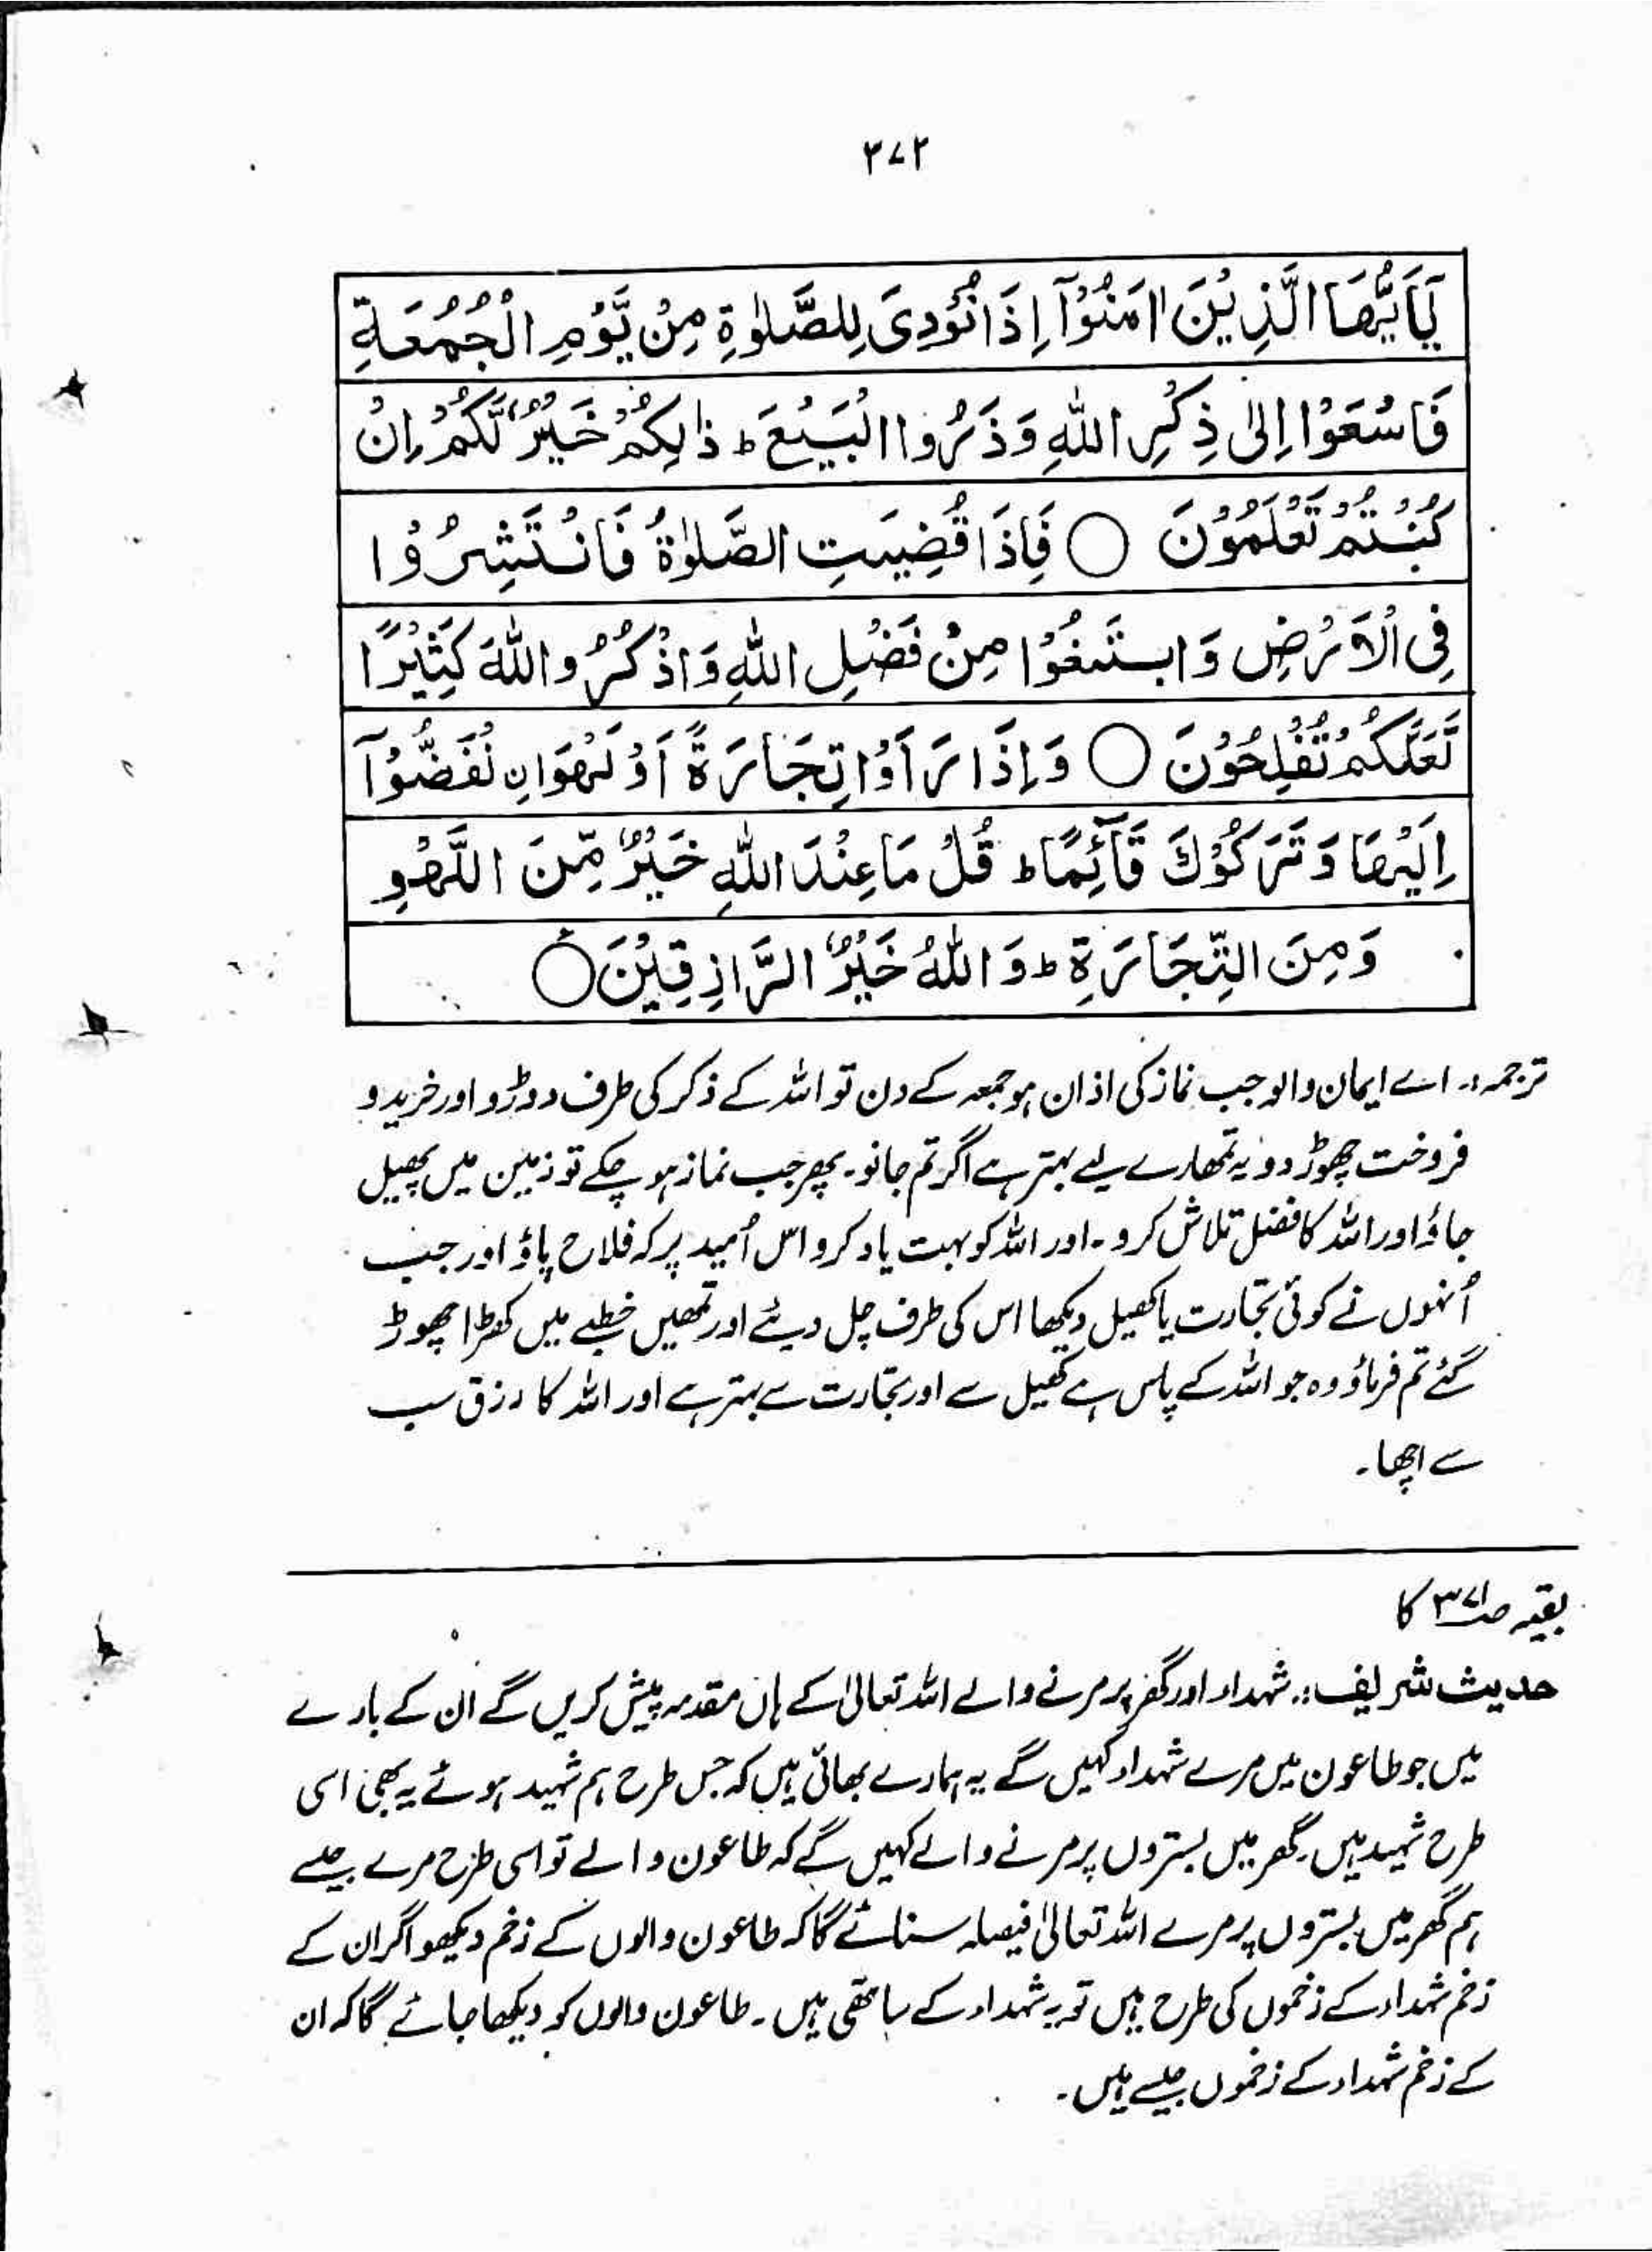 ۳۷۲
يٰٓاَيُّهَا الَّذِيْنَ اٰمَنُوْٓا اِذَا نُوْدِىَ لِلصَّلٰوةِ مِنْ يَّوْمِ الْجُمُعَةِ
فَاسْعَوْا اِلٰى ذِكْرِ اللّٰهِ وَذَرُوا الْبَيْعَ ؕ ذٰلِكُمْ خَيْرٌ لَّكُمْ اِنْ
كُنْتُمْ تَعْلَمُوْنَ ○ فَاِذَا قُضِيَتِ الصَّلٰوةُ فَانْتَشِرُوْا
فِى الْاَرْضِ وَابْتَغُوْا مِنْ فَضْلِ اللّٰهِ وَاذْكُرُوا اللّٰهَ كَثِيْرًا
لَّعَلَّكُمْ تُفْلِحُوْنَ ○ وَاِذَا رَاَوْا تِجَارَةً اَوْ لَهْوَانِ نْفَضُّوْٓا
اِلَيْهَا وَتَرَكُوْكَ قَآئِمًا ؕ قُلْ مَا عِنْدَ اللّٰهِ خَيْرٌ مِّنَ اللَّهْوِ
وَمِنَ التِّجَارَةِ ؕ وَاللّٰهُ خَيْرُ الرَّازِقِيْنَ ○
ترجمہ:۔ اے ایمان والو جب نماز کی اذان ہو جمعہ کے دن تو اللہ کے ذکر کی طرف دوڑو اور خرید و
فروخت چھوڑ دو یہ تمھارے لیے بہتر ہے اگر تم جانو۔ پھر جب نماز ہو چکے تو زمین میں پھیل
جاؤ اور اللہ کا فضل تلاش کرو۔ اور اللہ کو بہت یاد کرو اس اُمید پر کہ فلاح پاؤ اور جب
اُنہوں نے کوئی تجارت یا کھیل دیکھا اس کی طرف چل دیئے اور تمھیں خطبے میں کھڑا چھوڑ
گئے تم فرماؤ وہ جو اللہ کے پاس ہے کھیل سے اور تجارت سے بہتر ہے اور اللہ کا رزق سب
سے اچھا۔
بقیہ صـ ۳۷۱ کا
حدیث شریف:۔ شہداء اور گھر پر مرنے والے اللہ تعالیٰ کے ہاں مقدمہ پیش کریں گے ان کے بارے
میں جو طاعون میں مرے شہداء کہیں گے یہ ہمارے بھائی ہیں کہ جس طرح ہم شہید ہوئے یہ بھی اسی
طرح شہید ہیں۔ گھر میں بستروں پر مرنے والے کہیں گے کہ طاعون والے تو اسی طرح مرے جیسے
ہم گھر میں بستروں پر مرے اللہ تعالیٰ فیصلہ سنائے گا کہ طاعون والوں کے زخم دیکھو اگر ان کے
زخم شہداء کے زخموں کی طرح ہیں تو یہ شہداء کے ساتھی ہیں۔ طاعون والوں کو دیکھا جائے گا کہ ان
کے زخم شہداء کے زخموں جیسے ہیں۔